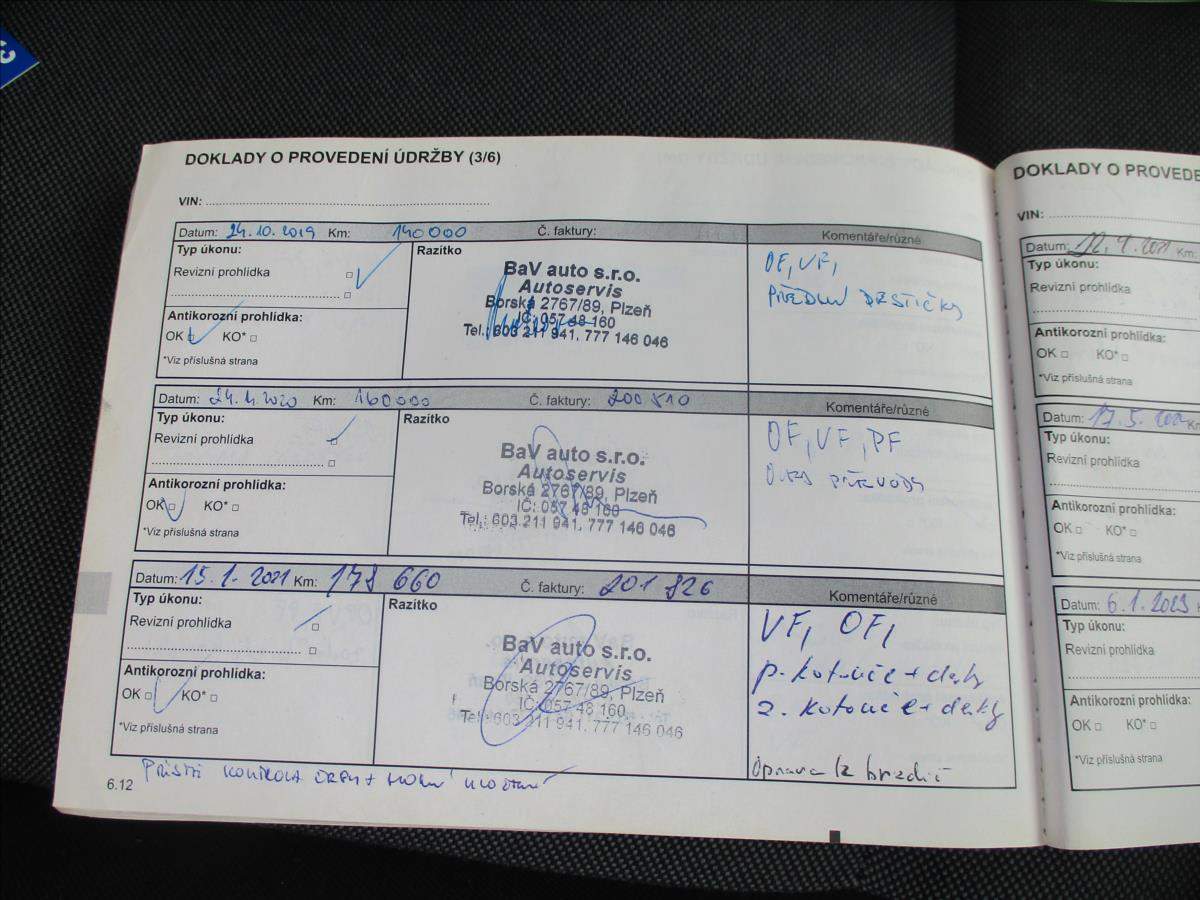 DOKLADY O PROVEDENÍ ÚDRŽBY (3/6)
VIN:
Datum: 24.10.2019 Km: 140000 Č. faktury:
Komentáře/různé
Typ úkonu:
Revizní prohlídka
Antikorozní prohlídka:
OK KO*
*Viz příslušná strana
Razítko
BaV auto s.r.o.
Autoservis
Borská 2767/89, Plzeň
IČ: 057 48 160
Tel.: 603 211 941, 777 146 046
OF, VF,
PŘEDNÍ DESTIČKY
Datum: 24.4.2020 Km: 160000 Č. faktury: 200510
Komentáře/různé
Typ úkonu:
Revizní prohlídka
Antikorozní prohlídka:
OK KO*
*Viz příslušná strana
Razítko
BaV auto s.r.o.
Autoservis
Borská 2767/89, Plzeň
IČ: 057 48 160
Tel.: 603 211 941, 777 146 046
OF, VF, PF
OLEJ PŘEVODY
Datum: 15.1.2021 Km: 178 660 Č. faktury: 201 826
Komentáře/různé
Typ úkonu:
Revizní prohlídka
Antikorozní prohlídka:
OK KO*
*Viz příslušná strana
Razítko
BaV auto s.r.o.
Autoservis
Borská 2767/89, Plzeň
IČ: 057 48 160
Tel.: 603 211 941, 777 146 046
VF, OF,
p. kotouče + desky
z. kotouče + desky
Oprava brzdič
PŘÍSTĚ KONTROLA
6.12
DOKLADY O PROVEDE
VIN:
Datum: Km:
Typ úkonu:
Revizní prohlídka
Antikorozní prohlídka:
OK KO*
*Viz příslušná strana
Datum: 17.5. Km
Typ úkonu:
Revizní prohlídka
Antikorozní prohlídka:
OK KO*
*Viz příslušná strana
Datum: 6.1.2023
Typ úkonu:
Revizní prohlídka
Antikorozní prohlídka:
OK KO*
*Viz příslušná strana